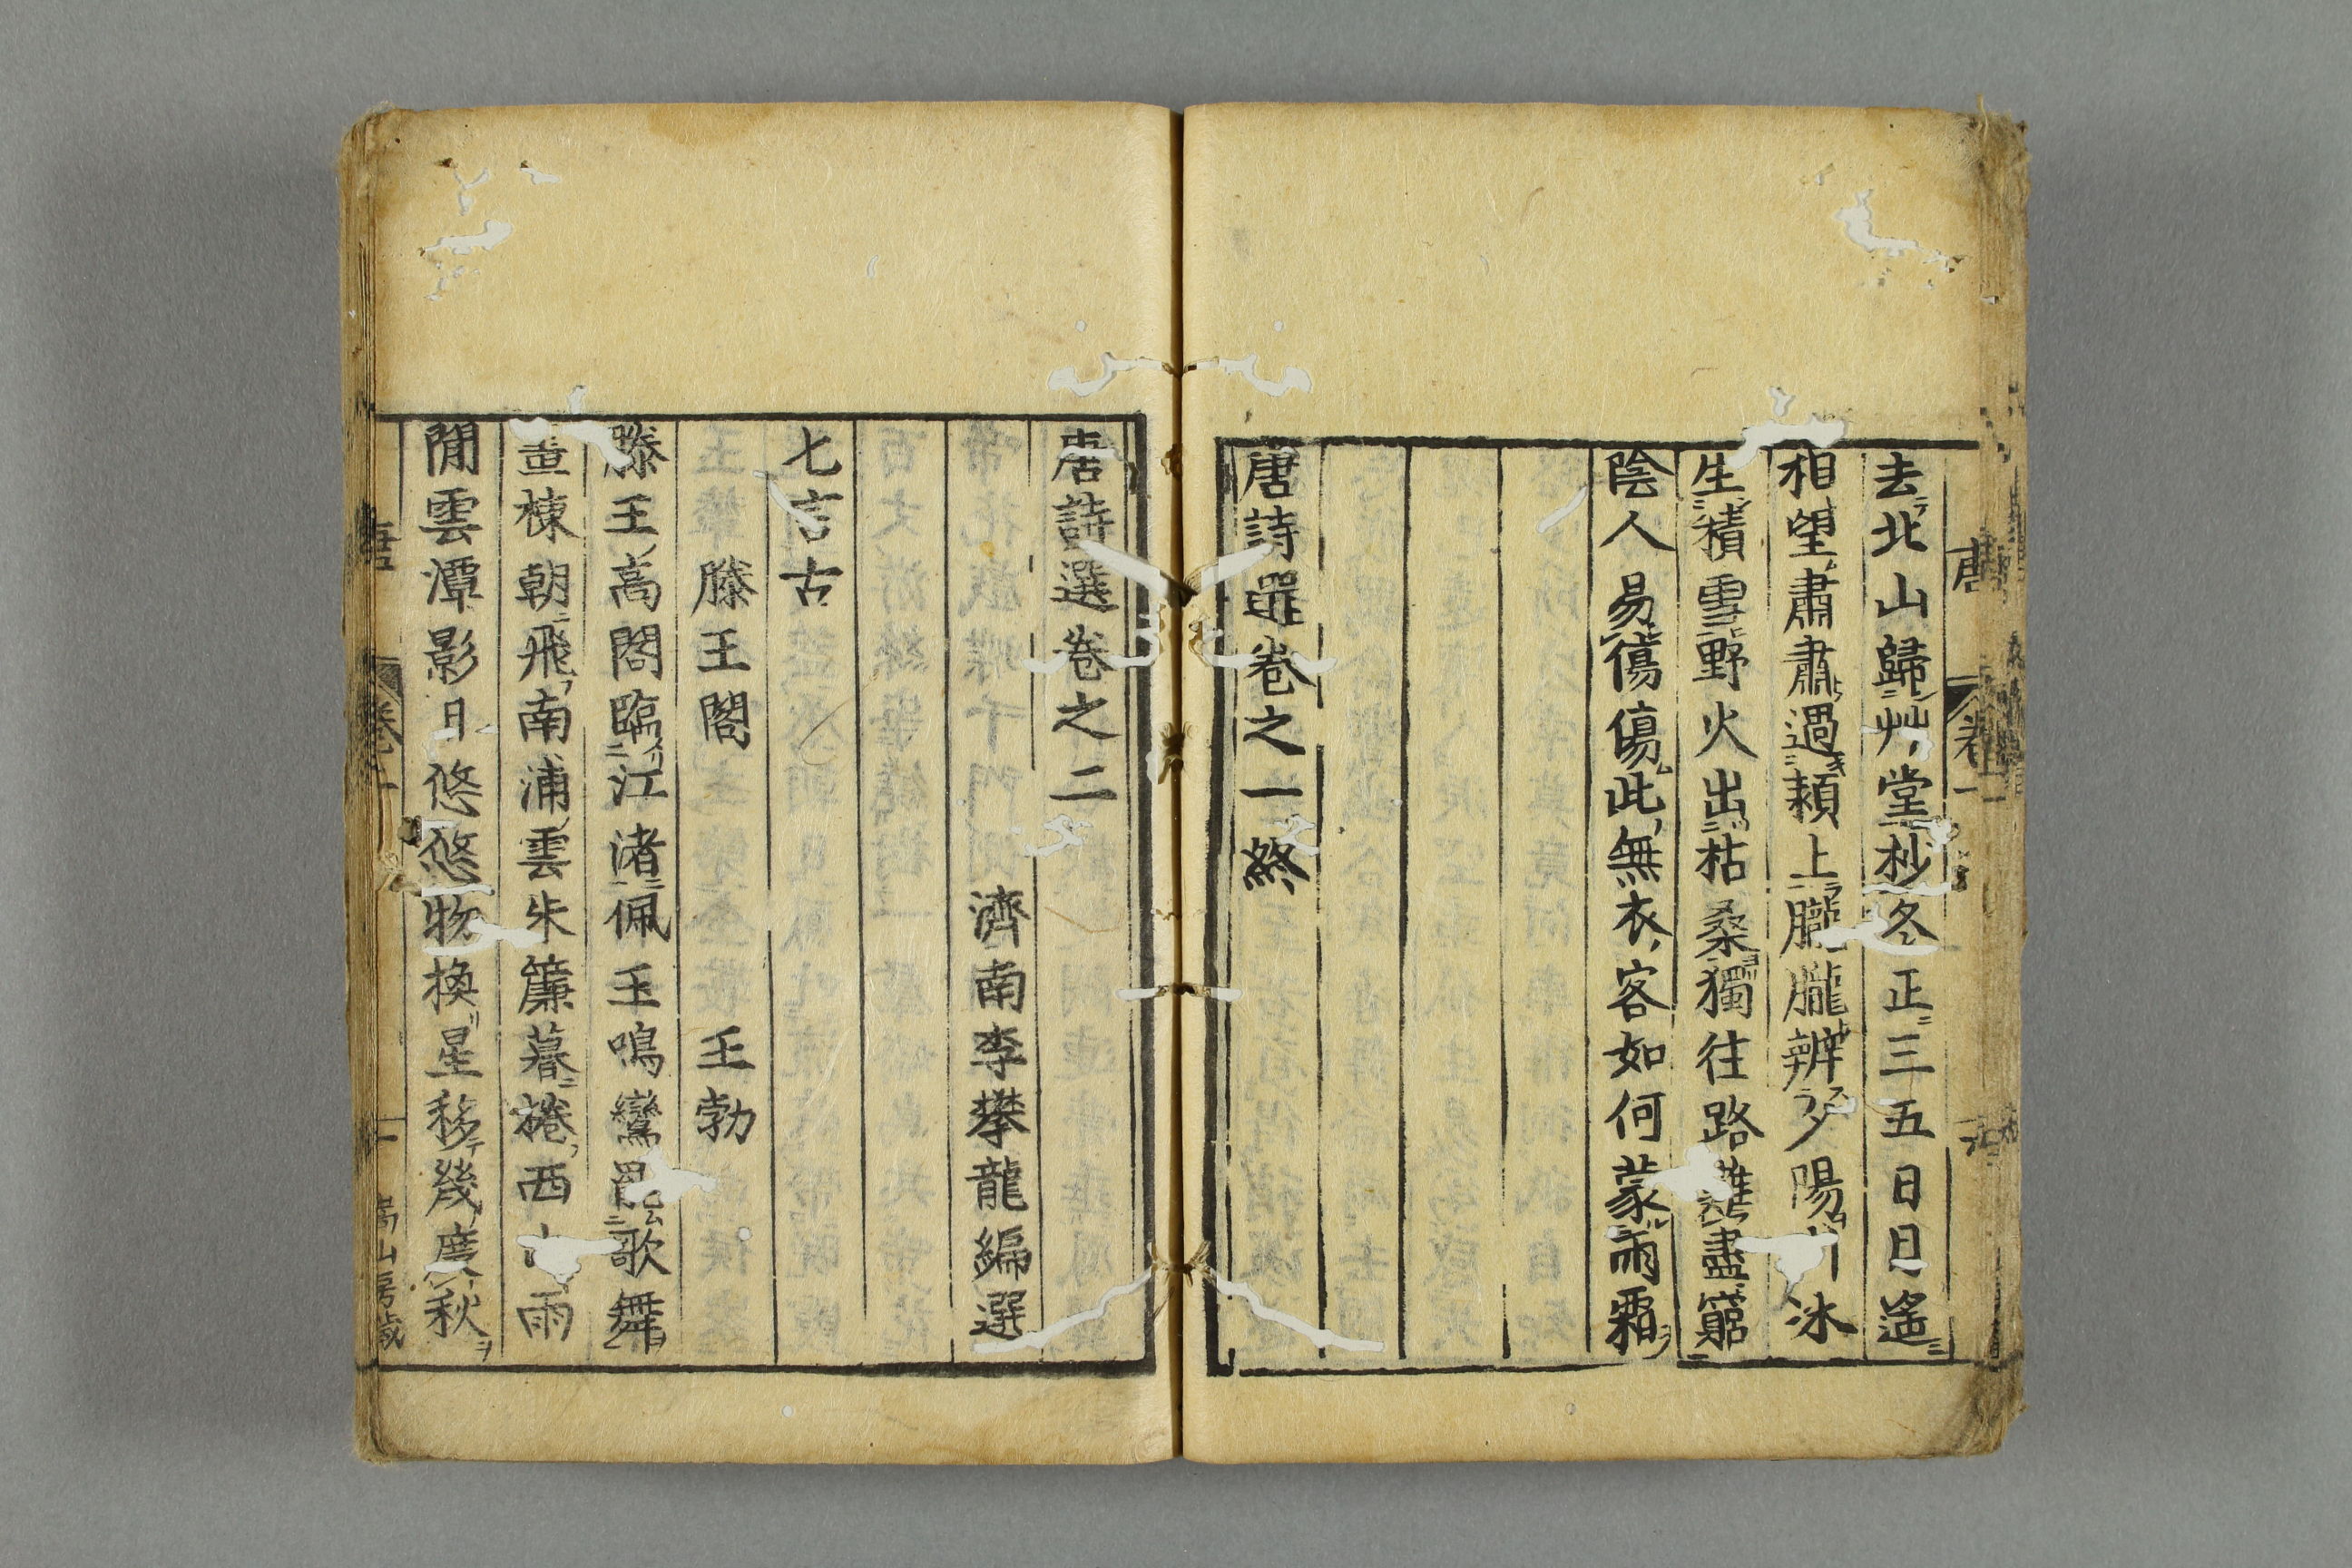 去北山歸艸堂杪冬正三五日日遙
相望肅肅過潁上朧朧辨夕陽川冰
生積雪野火出枯桑獨往路難盡窮
陰人易傷傷此無衣客如何蒙雨霜
唐詩選卷之一終
唐詩選卷之二
濟南李攀龍編選
七言古
滕王閣 王勃
滕王高閣臨江渚佩玉鳴鸞罷歌舞
畫棟朝飛南浦雲朱簾暮捲西山雨
閒雲潭影日悠悠物換星移幾度秋
嵩山房藏